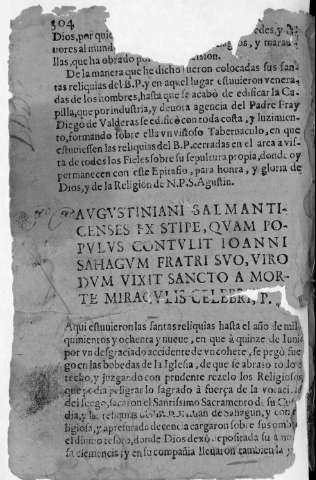 304
Dios, por quie edes, y
uores al mund gios, y marau
llas, que ha obrado por
De la manera que he dicho fueron colocadas sus san
tas reliquias del B.P. y en aquel lugar estuuieron venera
das de los hombres, hasta que se acabò de edificar la Ca
pilla, que por industria, y deuota agencia del Padre Fray
Diego de Valderas se edificò con toda costa, y luzimien
to, formando sobre ella vn vistoso Tabernaculo, en que
estuuiessen las reliquias del B.P. cerradas en el arca a vis-
ta de todos los Fieles sobre su sepultura propia, donde oy
permanecen con este Epitafio, para honra, y gloria de
Dios, y de la Religion de N.P.S. Agustin.
AVGVSTINIANI SALMANTI-
CENSES EX STIPE, QVAM PO-
PVLVS CONTVLIT IOANNI
SAHAGVM FRATRI SVO, VIRO
DVM VIXIT SANCTO A MOR-
TE MIRACVLIS CELEBRI, P.
Aqui estuuieron las santas reliquias hasta el año de mil
quinientos y ochenta y nueue, en que à quinze de Iunio
por vn desgraciado accidente de vn cohete, se pegò fue
go en las bobedas de la Iglesia, de que se abrasò todo e
techo, y juzgando con prudente rezelo los Religiosos
que podia peligrar lo sagrado à fuerça de la voraci
del fuego, sacaron el Santissimo Sacramento de su Cu
dia, y las reliquias del B.P.F. Iuan de Sahagun, y con
ligiosa, y apresurada decencia cargaron sobre sus omb
el diuino tesoro, donde Dios dexò depositada su
sa clemencia; y en su compañia lleuaron tambien la